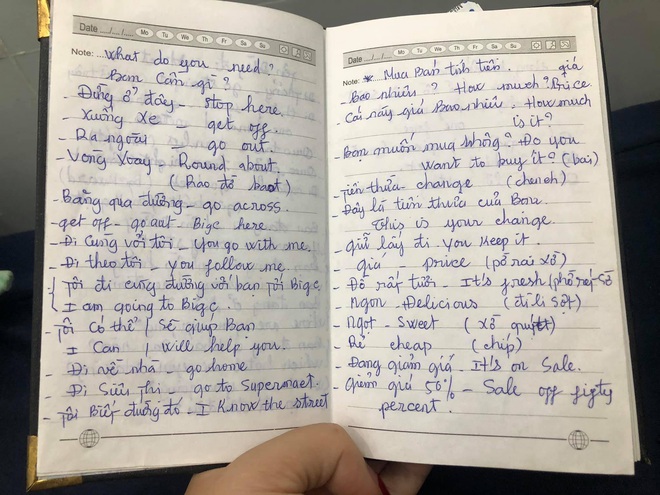 Date __/__/__ Mo Tu We Th Fr Sa Su
Note: What do you need?
Bạn Cần gì?
Đứng ở đây - Stop here.
- Xuống xe - get off.
- Ra ngoài - go out.
- Vòng Xoay - Round about.
(Rao đờ baot)
- Băng qua đường - go across.
- get off - go out - Bigc here
- Đi Cùng với tôi - You go with me.
- Đi theo tôi - you follow me.
Tôi đi cùng đường với bạn tới Bigc
I am going to Bigc.
- Tôi Có thể / Sẽ giúp Bạn
I Can / will help you.
- Đi về nhà - go home
- Đi Siêu Thị - go to Supermaet.
- Tôi Biết đường đó - I Know the street
Date __/__/__ Mo Tu We Th Fr Sa Su
Note: * Mua Bán tính tiền. giá
- Bao nhiêu? How much? Price.
Cái này giá Bao nhiêu. How much
is it?
Bạn muốn mua không? Do you
want to buy it? (bai)
- Tiền thừa - change (chench)
- Đây là tiền thừa của Bạn
This is your change.
- giữ lấy đi - You Keep it.
- giá - price
- Đồ rất tươi - It's fresh
- Ngon - Delicious (đi li Sớt)
- Ngọt - Sweet
- Rẻ cheap (chíp)
- Đang giảm giá - It's on Sale.
- Giảm giá 50% - Sale off figty
percent.